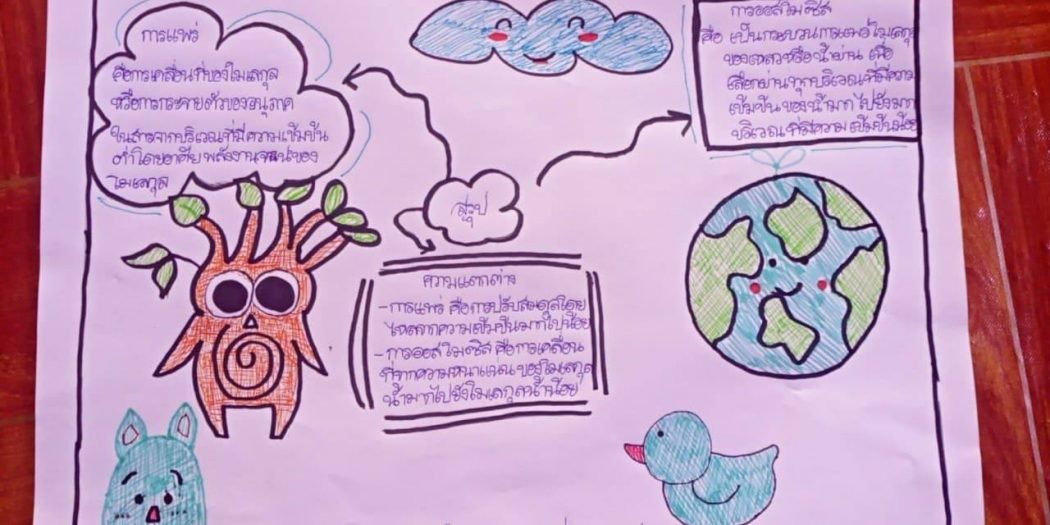 การแพร่
คือการเคลื่อนที่ของโมเลกุล
หรือการกระจายตัวของอนุภาค
ในสารจากบริเวณที่มีความเข้มข้น
ต่ำโดยอาศัยพลังงานจลน์ของ
โมเลกุล
การออสโมซิส
คือ เป็นกระบวนการแพร่โมเลกุล
ของเหลวหรือน้ำผ่าน เยื่อ
เลือกผ่านทุกบริเวณที่มีความ
เข้มข้น ของน้ำมาก ไปยังมาก
บริเวณ ที่มีความ เข้มข้นน้อย
สรุป
ความแตกต่าง
- การแพร่ คือการปรับสมดุลโดย
ไหลจากความเข้มข้นมากไปน้อย
- การออสโมซิส คือการเคลื่อน
ที่จากความหนาแน่น ของโมเลกุล
น้ำมากไปยังโมเลกุลน้ำน้อย